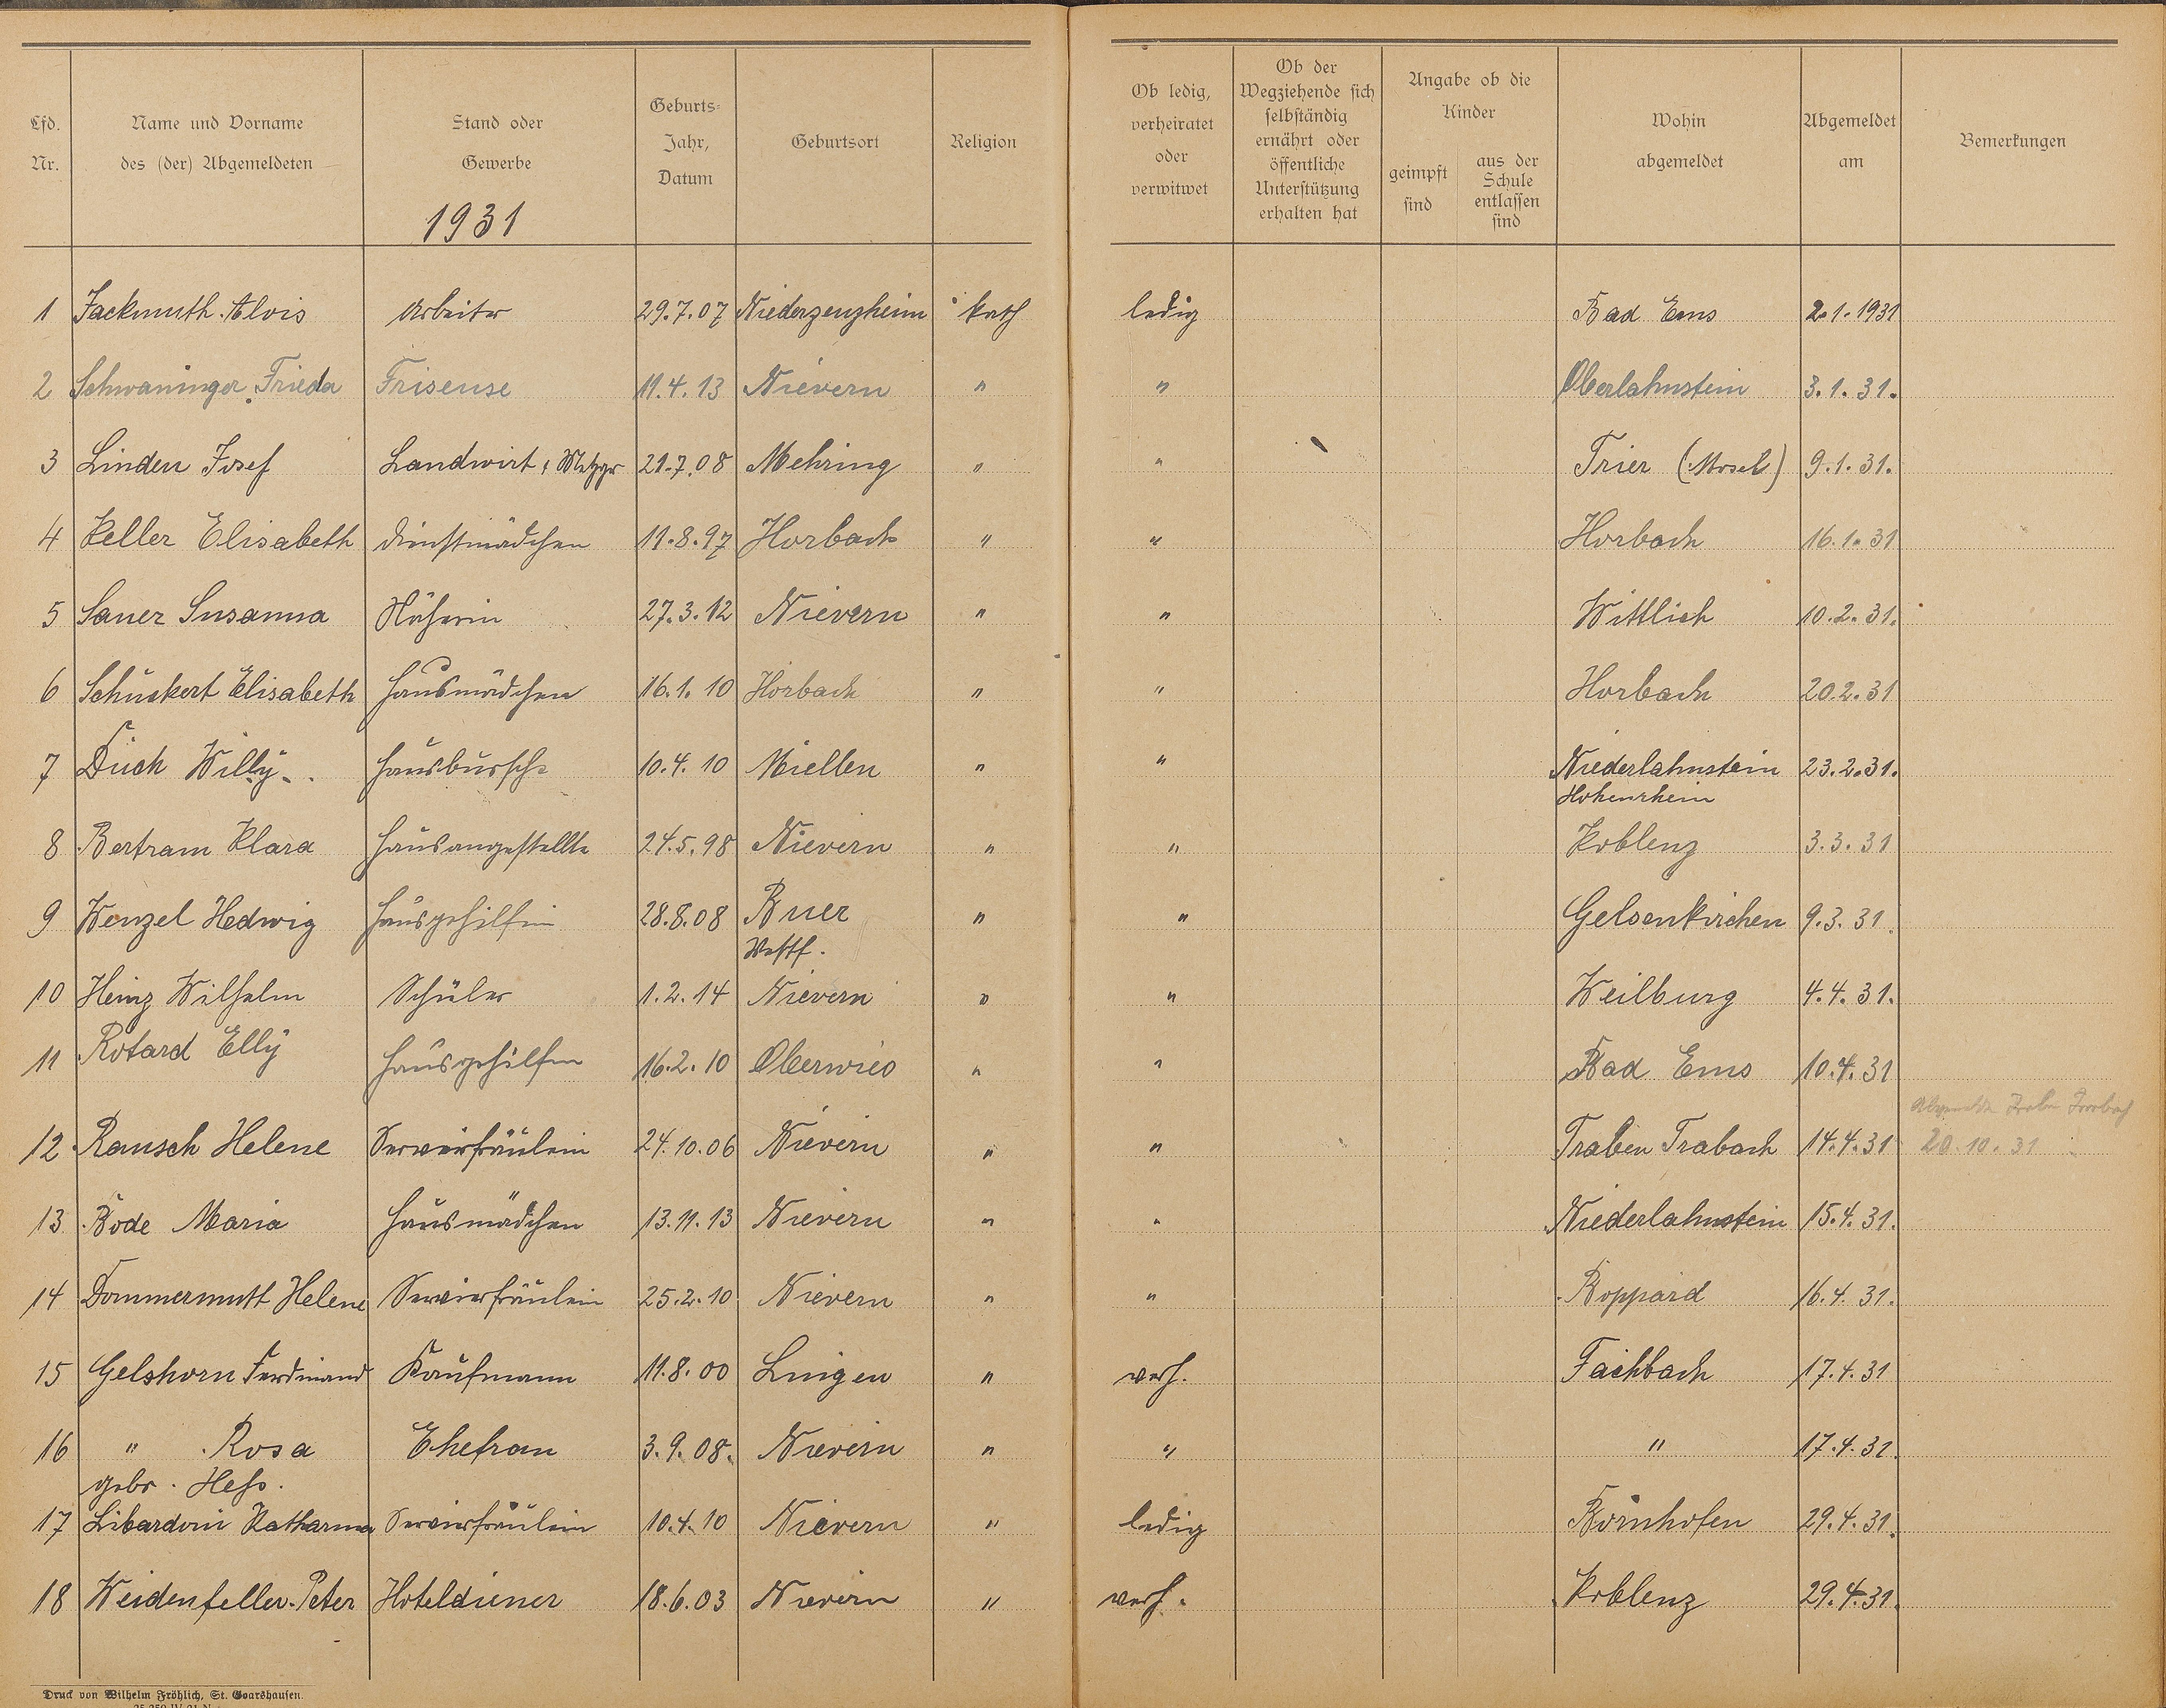 Lfd. Nr. | Name und Vorname des (der) Abgemeldeten | Stand oder Gewerbe | Geburts- Jahr, Datum | Geburtsort | Religion | Ob ledig, verheiratet oder verwitwet | Ob der Wegziehende sich selbständig ernährt oder öffentliche Unterstützung erhalten hat | Angabe ob die Kinder geimpft sind | aus der Schule entlassen sind | Wohin abgemeldet | Abgemeldet am | Bemerkungen
1931
1 Jackmuth Alois Arbeiter 29.7.07 Niederzeuzheim kath ledig Bad Ems 2.1.1931
2 Schwaninger Frieda Friseuse 11.4.13 Nievern " " Oberlahnstein 3.1.31.
3 Linden Josef Landwirt, Metzger 21.7.08 Mehring " " Trier (Mosel) 9.1.31.
4 Keller Elisabeth Dienstmädchen 11.8.97 Horbach " " Horbach 16.1.31
5 Sauer Susanna Näherin 27.3.12 Nievern " " Wittlich 10.2.31.
6 Schückert Elisabeth Hausmädchen 16.1.10 Horbach " " Horbach 20.2.31
7 Düch Willy Hausbursche 10.4.10 Miellen " " Niederlahnstein 23.2.31.
Hohenrhein
8 Bertram Klara Hausangestellte 24.5.98 Nievern " " Koblenz 3.3.31
9 Wenzel Hedwig Hausgehilfin 28.8.08 Buer " " Gelsenkirchen 9.3.31.
Westf.
10 Heinz Wilhelm Schüler 1.2.14 Nievern " " Weilburg 4.4.31.
11 Rotard Elly Hausgehilfin 16.2.10 Oberwies " " Bad Ems 10.4.31
12 Rausch Helene Servierfräulein 24.10.06 Nievern " " Traben Trabach 14.4.31 20.10.31
13 Bode Maria Hausmädchen 13.11.13 Nievern " " Niederlahnstein 15.4.31.
14 Dommermuth Helene Servierfräulein 25.2.10 Nievern " " Boppard 16.4.31.
15 Gelshorn Ferdinand Kaufmann 11.8.00 Lingen " verh. Fachbach 17.4.31
16 " Rosa Ehefrau 3.9.08. Nievern " " " 17.4.31.
gebr. Heß.
17 Libardoni Katharina Servierfräulein 10.4.10 Nievern " ledig Bornhofen 29.4.31.
18 Weidenfeller Peter Hoteldiener 18.6.03 Nievern " verh. Koblenz 29.4.31.
Druck von Wilhelm Fröhlich, St. Goarshausen.